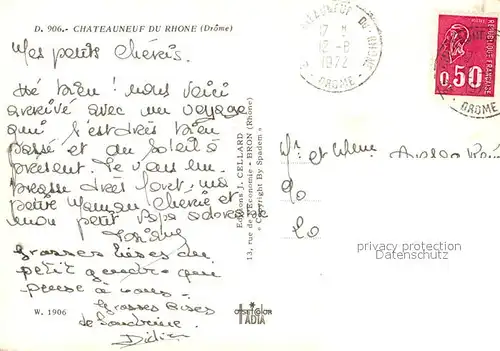 D. 906.- CHATEAUNEUF DU RHONE (Drôme)
Mes petits Chéris.
Hé bien! nous voici
arrivé avec un voyage
qui s'est très bien
passé et du soleil à
présent. Je vous em
brasse très fort, ma
petite Maman Chérie et
mon petit Papa adoré
Grosses bises du
petit gendre qui
pense à vous.
Grosses Bises
de Sandrine.
Didier
W. 1906
Editions J. CELLARD
13, rue de l'Economie - BRON (Rhône)
« Copyright By Spadem »
OFFSET COLOR
IADIA
CHATEAUNEUF DU RHONE
17 H
12-8
1972
DROME
REPUBLIQUE FRANÇAISE
0,50
DROME
Mr et Mme
privacy protection
VDMedien24.de